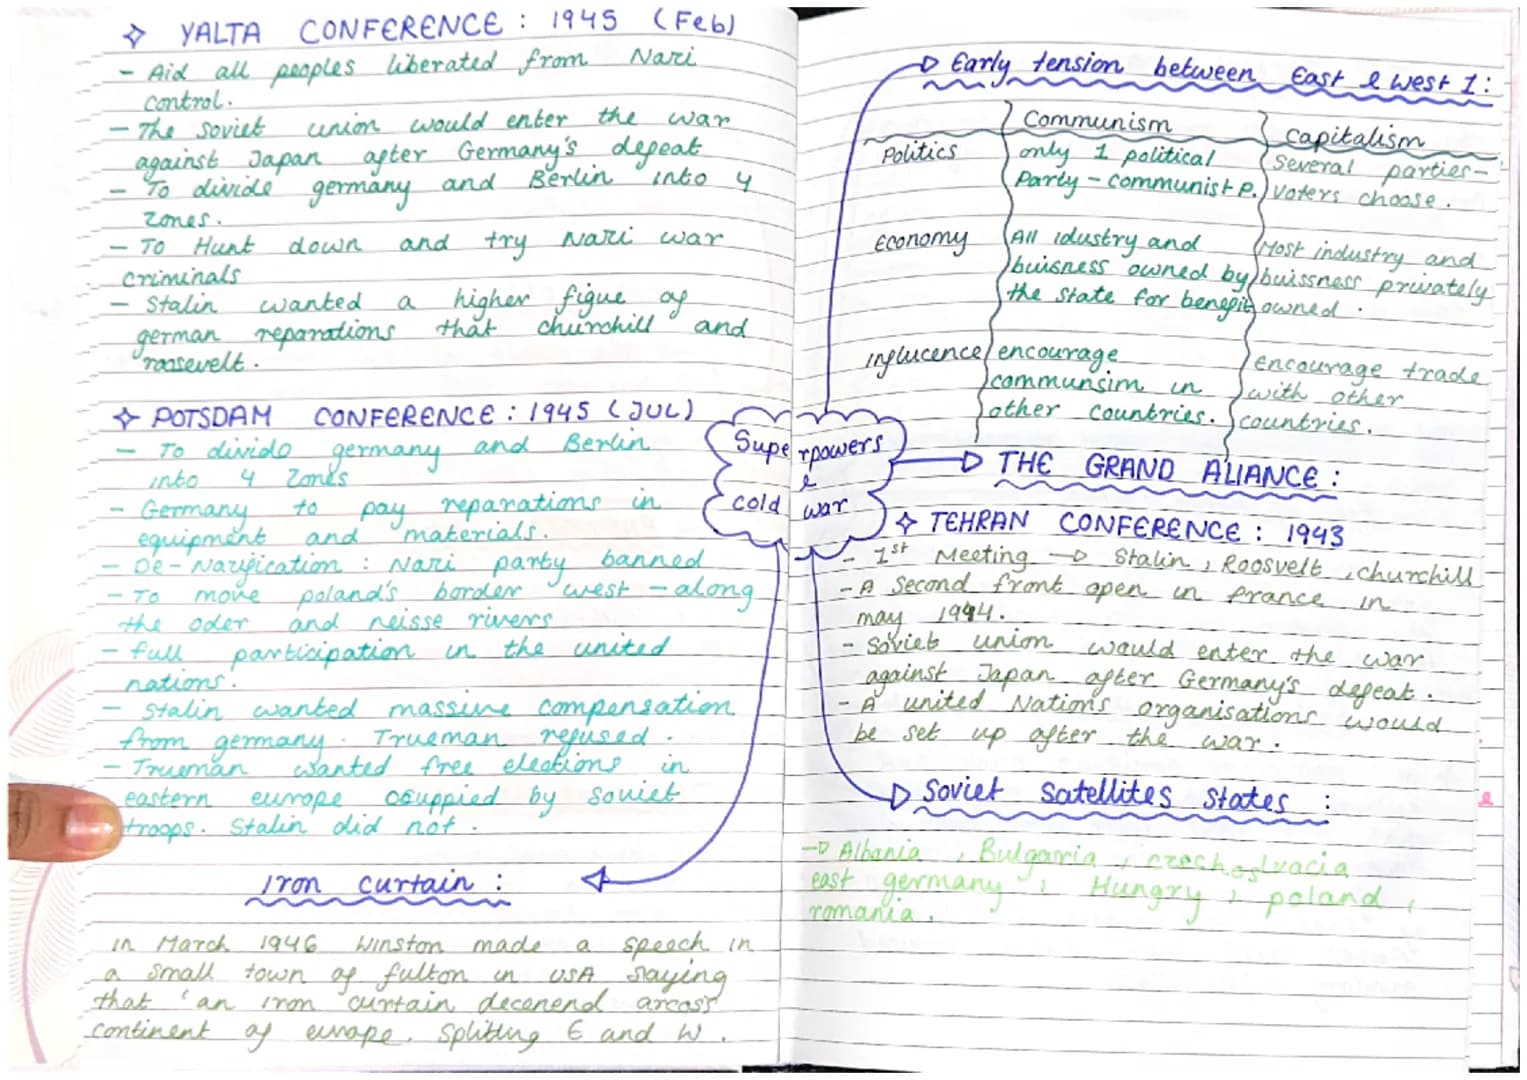 ✧ YALTA CONFERENCE : 1945 (Feb)
- Aid all peoples liberated from Nazi
control.
- The soviet union would enter the war
against Japan after Germany's defeat
- To divide germany and Berlin into 4
zones.
- To Hunt down and try Nazi war
criminals
- Stalin wanted a higher figue of
german reparations that churchill and
roosevelt.
✧ POTSDAM CONFERENCE : 1945 (JUL)
- To divide germany and Berlin
into 4 Zones
- Germany to pay reparations in
equipment and materials.
- De-Nazification : Nazi party banned
- To move poland's border west - along
the oder and neisse rivers
- full participation in the united
nations.
- Stalin wanted massive compensation
from germany. Trueman refused.
- Trueman wanted free elections in
eastern europe ocuppied by soviet
troops. Stalin did not.
Iron curtain :
in March 1946 Winston made a speech in
a small town of fulton in USA saying
that 'an iron curtain decenend arcoss
continent of europe. Splitting E and W.
Superpowers
&
cold war
Early tension between East & West 1:
Communism capitalism
Politics only 1 political Several parties-
Party - communist P. voters choose.
Economy All idustry and Most industry and
buisness owned by buissness privately
the state for benefit owned.
influcence encourage Encourage trade
communsim in with other
other countries. countries.
THE GRAND ALIANCE :
✧ TEHRAN CONFERENCE : 1943
- 1st Meeting → Stalin, Roosvelt, churchill
- A Second front open in france in
may 1944.
- Soviet union would enter the war
against Japan after Germany's defeat.
- A united Nations organisations would
be set up after the war.
Soviet Satellites States :
→ Albania, Bulgaria, czechoslvacia
east germany, Hungry, poland,
romania.